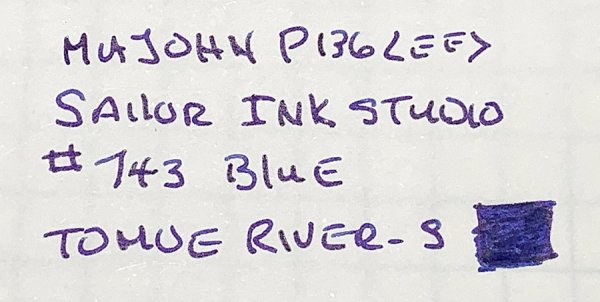 MAJOHN P136 <EF>
SAILOR INK STUDIO
# 743 BLUE
TOMOE RIVER-S